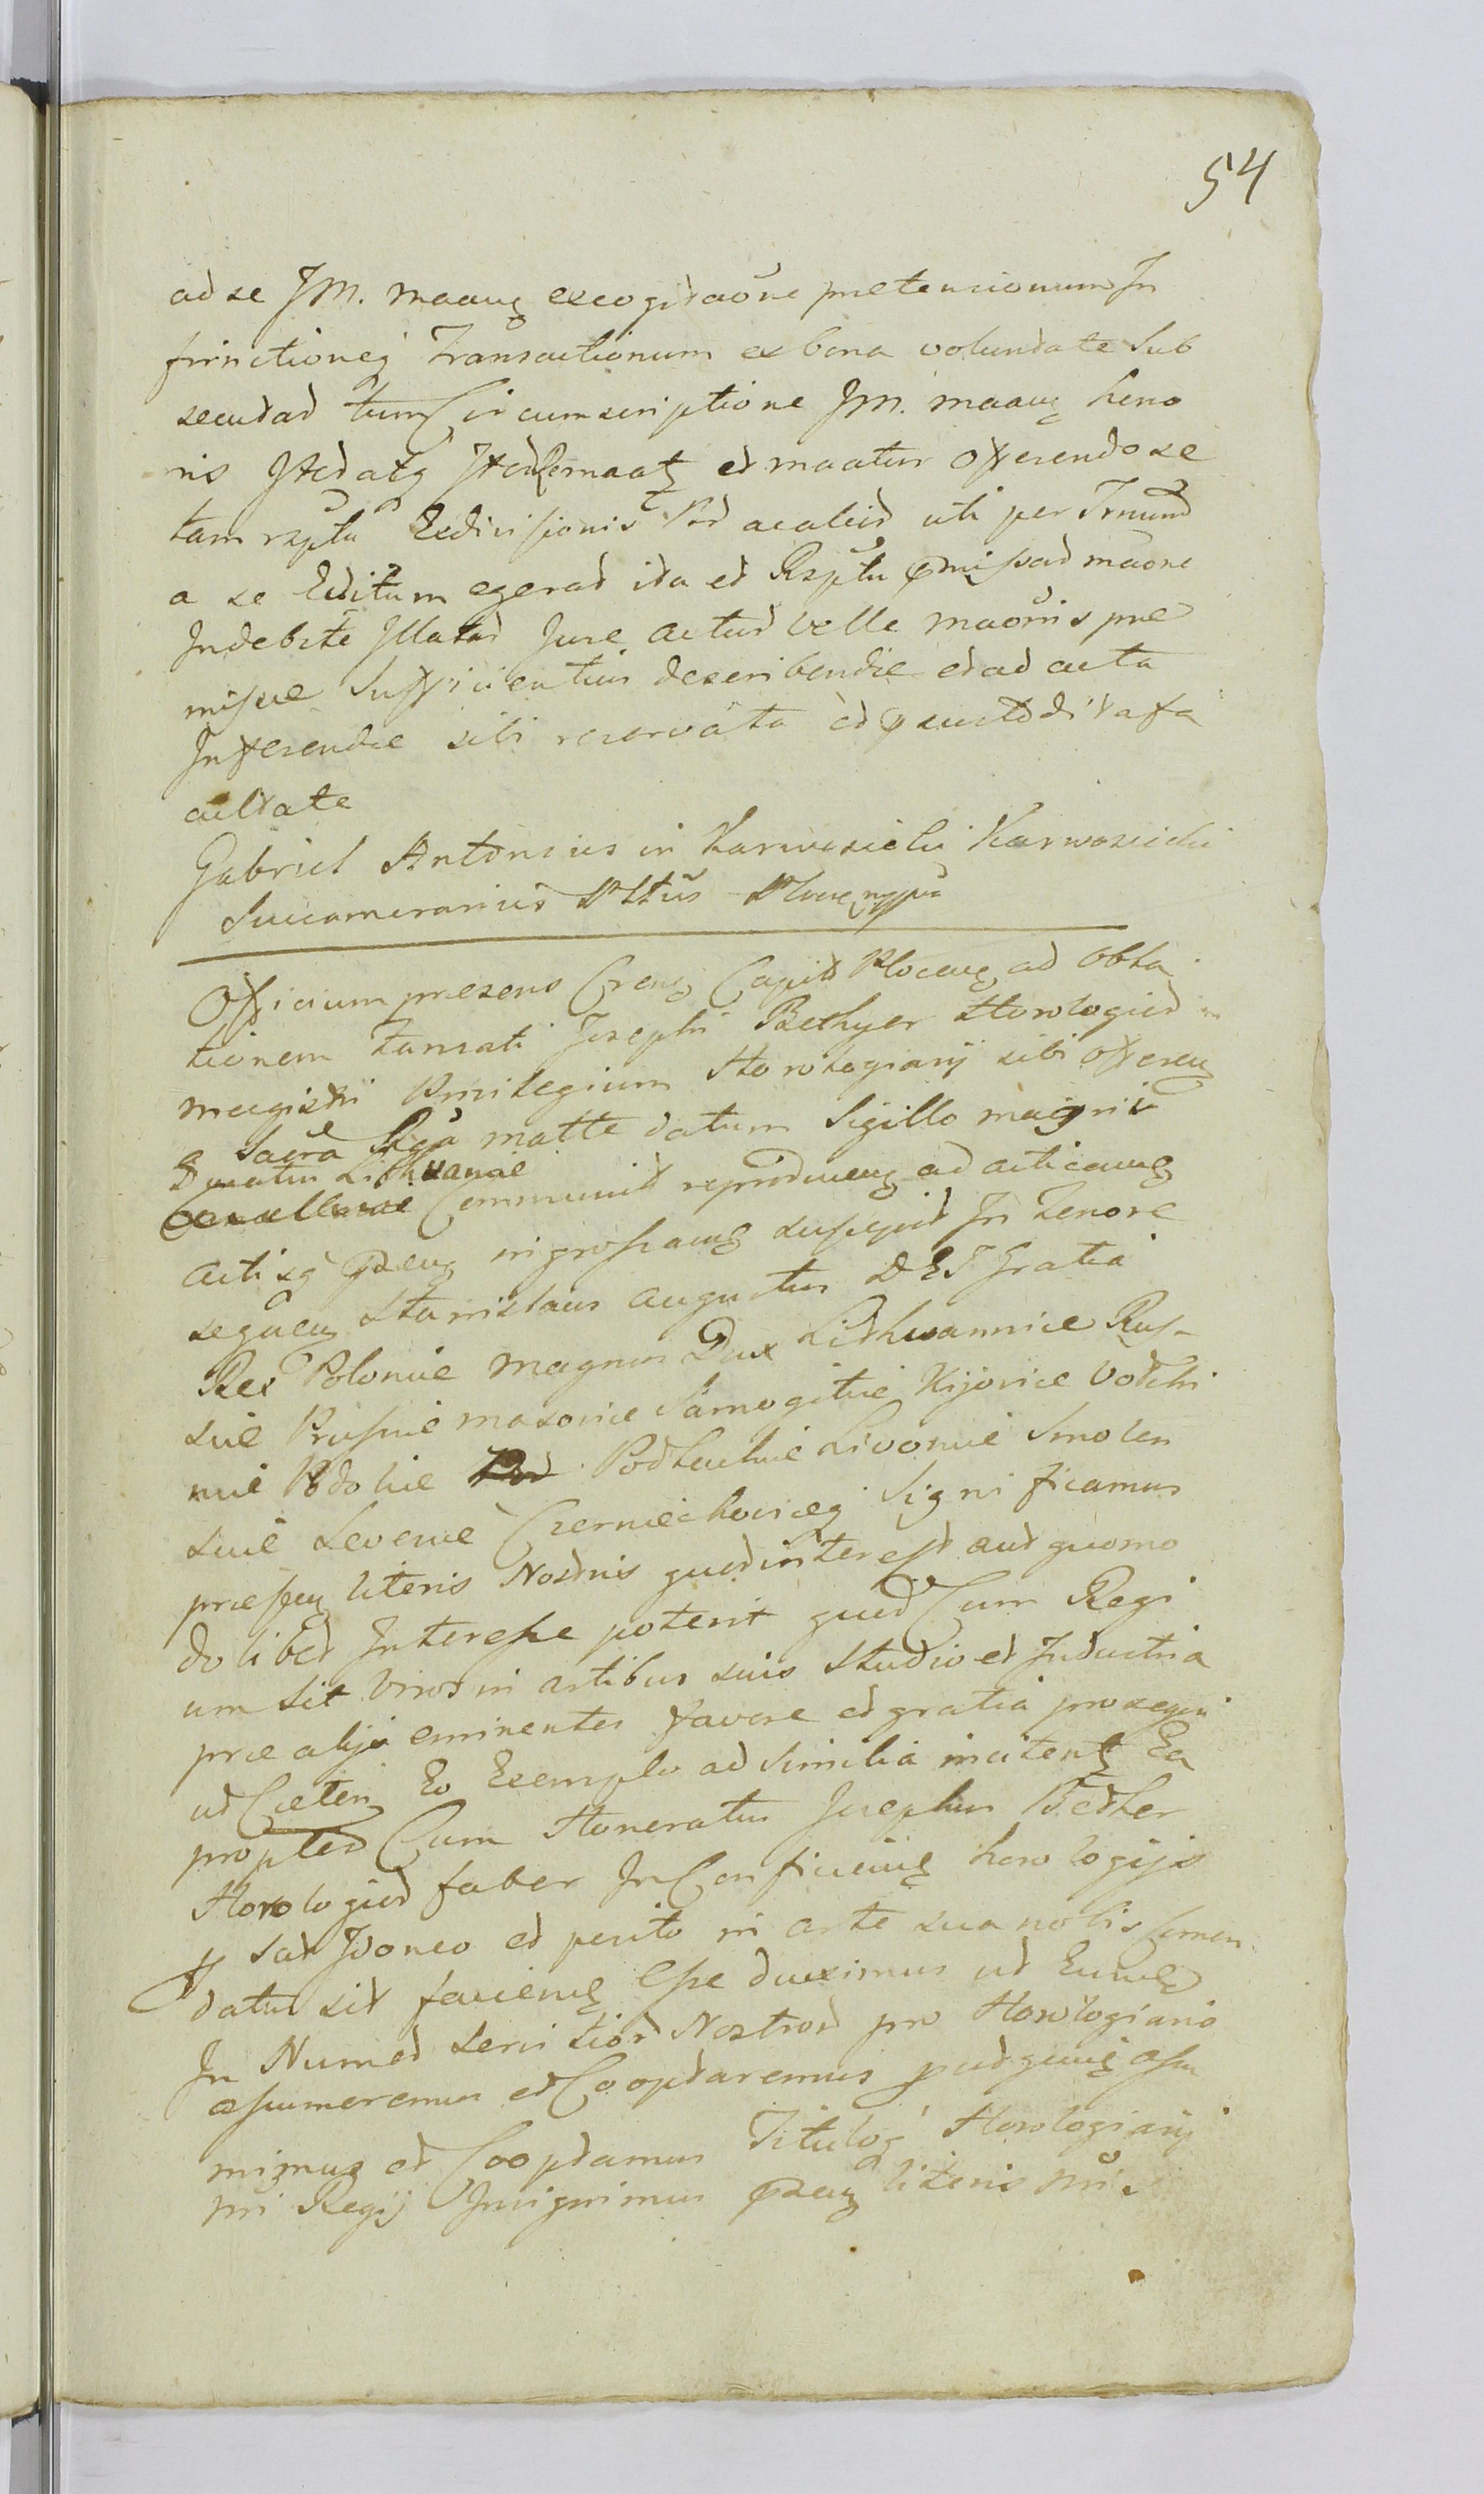 54
ad se JM. maaṇ excogitaõne pretensionum In
finctioneq Transactionum ex bona voluntate Sub
secutad tum Circumscriptione JM. maaṇ heno
ris et maatur offerendo se
tam rxptu Ecdivisionis uti per
a se Editum egerad ita et Rxptu maõne
Indebite Illatad Jure actud velle maõnis pre
missæ Sufficientius describendæ et ad acta
Inferendæ sibi reservata et custodita fa
cultate
Gabriel Antonius in Karwosieki Karwosicki
Succamerarius Pltũs mppã
Officium presens Crenę Capit Plocenę ad obla
tionem famati Josephi Bethyer Horologied
magistri Privilegium Horologiarij sibi offerenę
a Sacra Rga matte datum Sigillo magni
Ducatus Lithvaniæ
Communit reproducenę ad acticanę
actisq ingrossanę suscepit In tenore
seqnen Stanislaus Augustus DEI Gratia
Rex Poloniæ Magnus Dux Lidhwanniæ Rus-
siæ Prussiæ masoviæ Samogitiæ Kijoviæ Volhi
niæ Podoliæ Podlachiæ Livoniæ Smolen
sciæ Severiæ Czerniechoviæq Significamus
præsen literis Nostris quod interest aut quomo
dolibet Interesse poterit quod Cum Regi
um sit Viros in artibus suis Studio et Industria
præ alijs eminentes favore et gratia prosequi
ut Cæteri Eo Exemplo ad Similia incitent Ea
propter Cum Honeratus Josephus Bedher
Horologied faber In Conficienę horologijs
sat Idoneo et perito in arte sua nobis Comen
datus sit facienę Esse duximus ut Eunde
In Numed Servitiord Nostrord pro Horologiario
assumeremus et Cooptaremus assu
mimus et Cooptamus Tituloq Horologiarij
nri Regij Insignimus literis nris